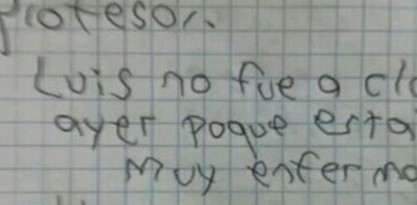 profesor.
Luis no fue a cl
ayer poque esta
muy enfermo